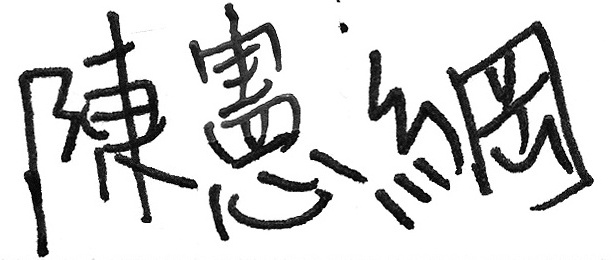 陳憲綱